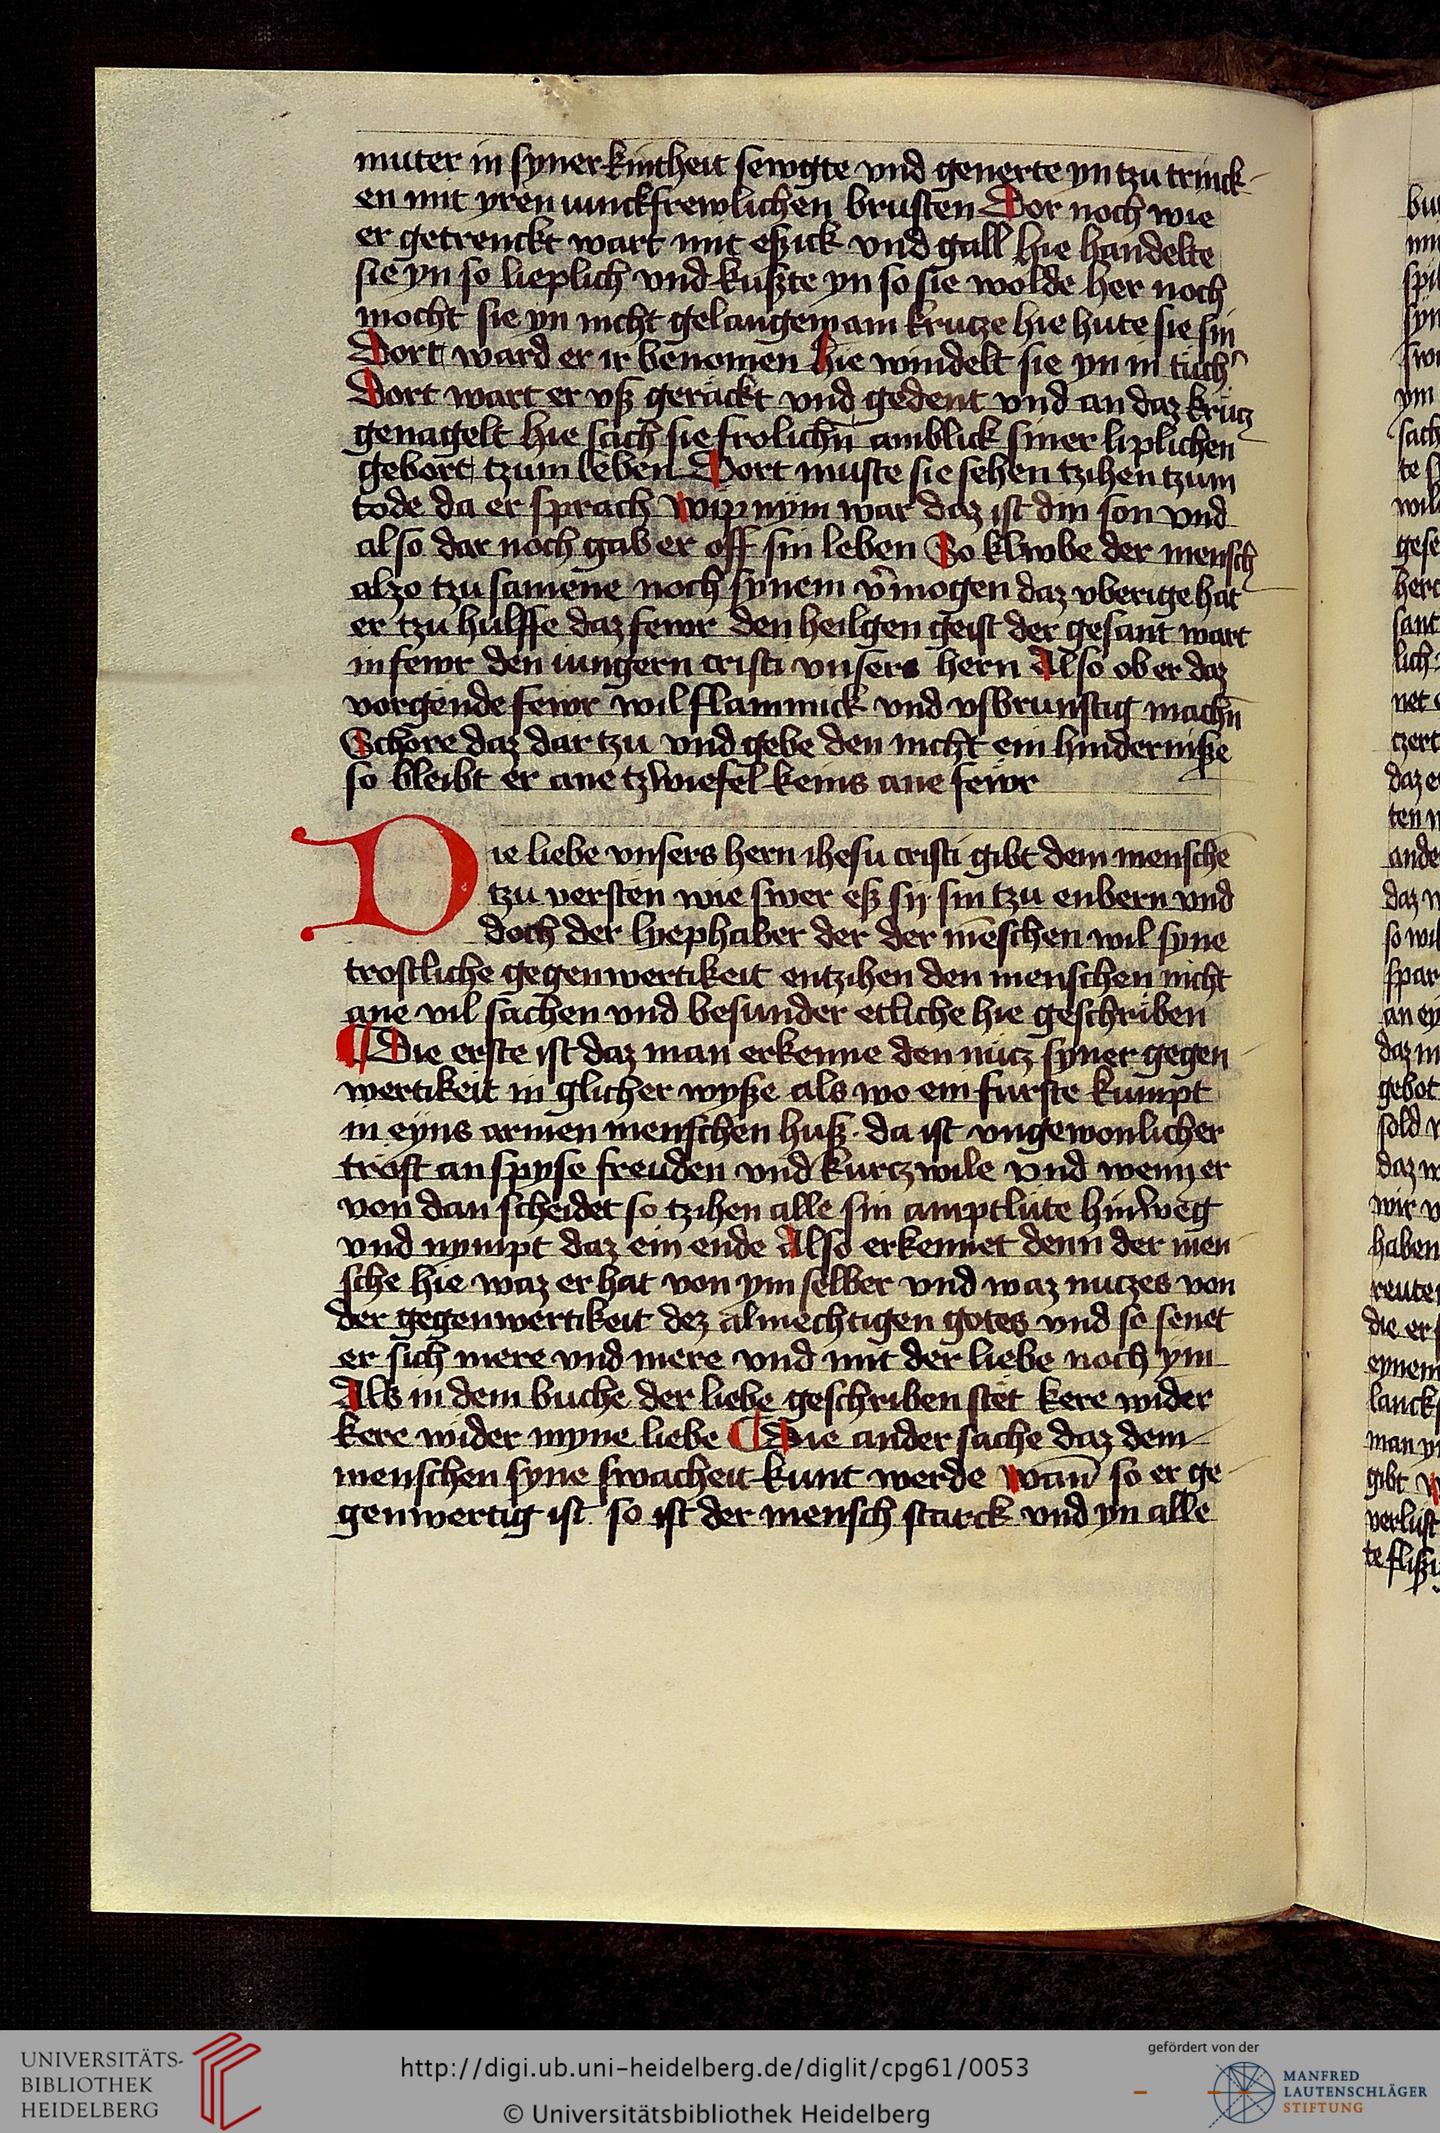 muter in syner kintheit sewgte vnd generte yn tzu trinck-
en mit yren iunckfrewlichen brusten Dor noch wie
er getrenckt wart mit eßick vnd gall hie handelte
sie yn so lieplich vnd kußte yn so sie wolde her noch
mocht sie yn nicht gelangen am krutze hie hute sie sin
Dort ward er ir benomen hie windelt sie yn in tuch
Dort wart er vß gerackt vnd gedent vnd an daz krucz
genagelt hie sach sie frolichn̄ anblick siner liplichen
gebort tzum leben Dort muste sie sehen tzihen tzum
tode da er sprach wip nym war daz ist din son vnd
also dar noch gab er off sin leben So klwbe der mensch
alzo tzu samene noch synem v̄mogen daz vberige hat
er tzu hulffe daz fewr den heilgen geist der gesant wart
in fewr den iungern cristi vnsers hern Also ob er daz
vorgende fewr wil flammick vnd vsbrunstig machn̄
Schore daz dar tzu vnd gebe den nicht ein hinderniße
so bleibt er ane tzwiefel keins ane fewr
Die liebe vnsers hern ihesu cristi gibt dem mensche
tzu versten wie swer eß sy sin tzu enbern vnd
doch der lyephaber der der mēschen wil syne
trostliche gegenwertikeit entzihen den menschen nicht
ane vil sachen vnd besunder etliche hie geschriben
¶ Die erste ist daz man erkenne den nutz syner gegen-
wertikeit in glicher wyße als wo ein furste kumpt
in eyns armen menschen huß da ist vngewonlicher
trost an spyse freuden vnd kurczwile vnd wenn er
von dan scheidet so tzihen alle sin amptlute hinweg
vnd nympt daz ein ende Also erkennet denn der men-
sche hie waz er hat von ym selber vnd waz nutzes von
der gegenwertikeit dez almechtigen gotes vnd so senet
er sich mere vnd mere vnd mit der liebe noch ym
Als in dem buche der liebe geschriben stet kere wider
kere wider myne liebe ¶ Die ander sache daz dem
menschen syne swacheit kunt werde wan̄ so er ge-
genwertig ist so ist der mensch starck vnd yn alle
UNIVERSITÄTS-
BIBLIOTHEK
HEIDELBERG
http://digi.ub.uni-heidelberg.de/diglit/cpg61/0053
© Universitätsbibliothek Heidelberg
gefördert von der
MANFRED
LAUTENSCHLÄGER
STIFTUNG